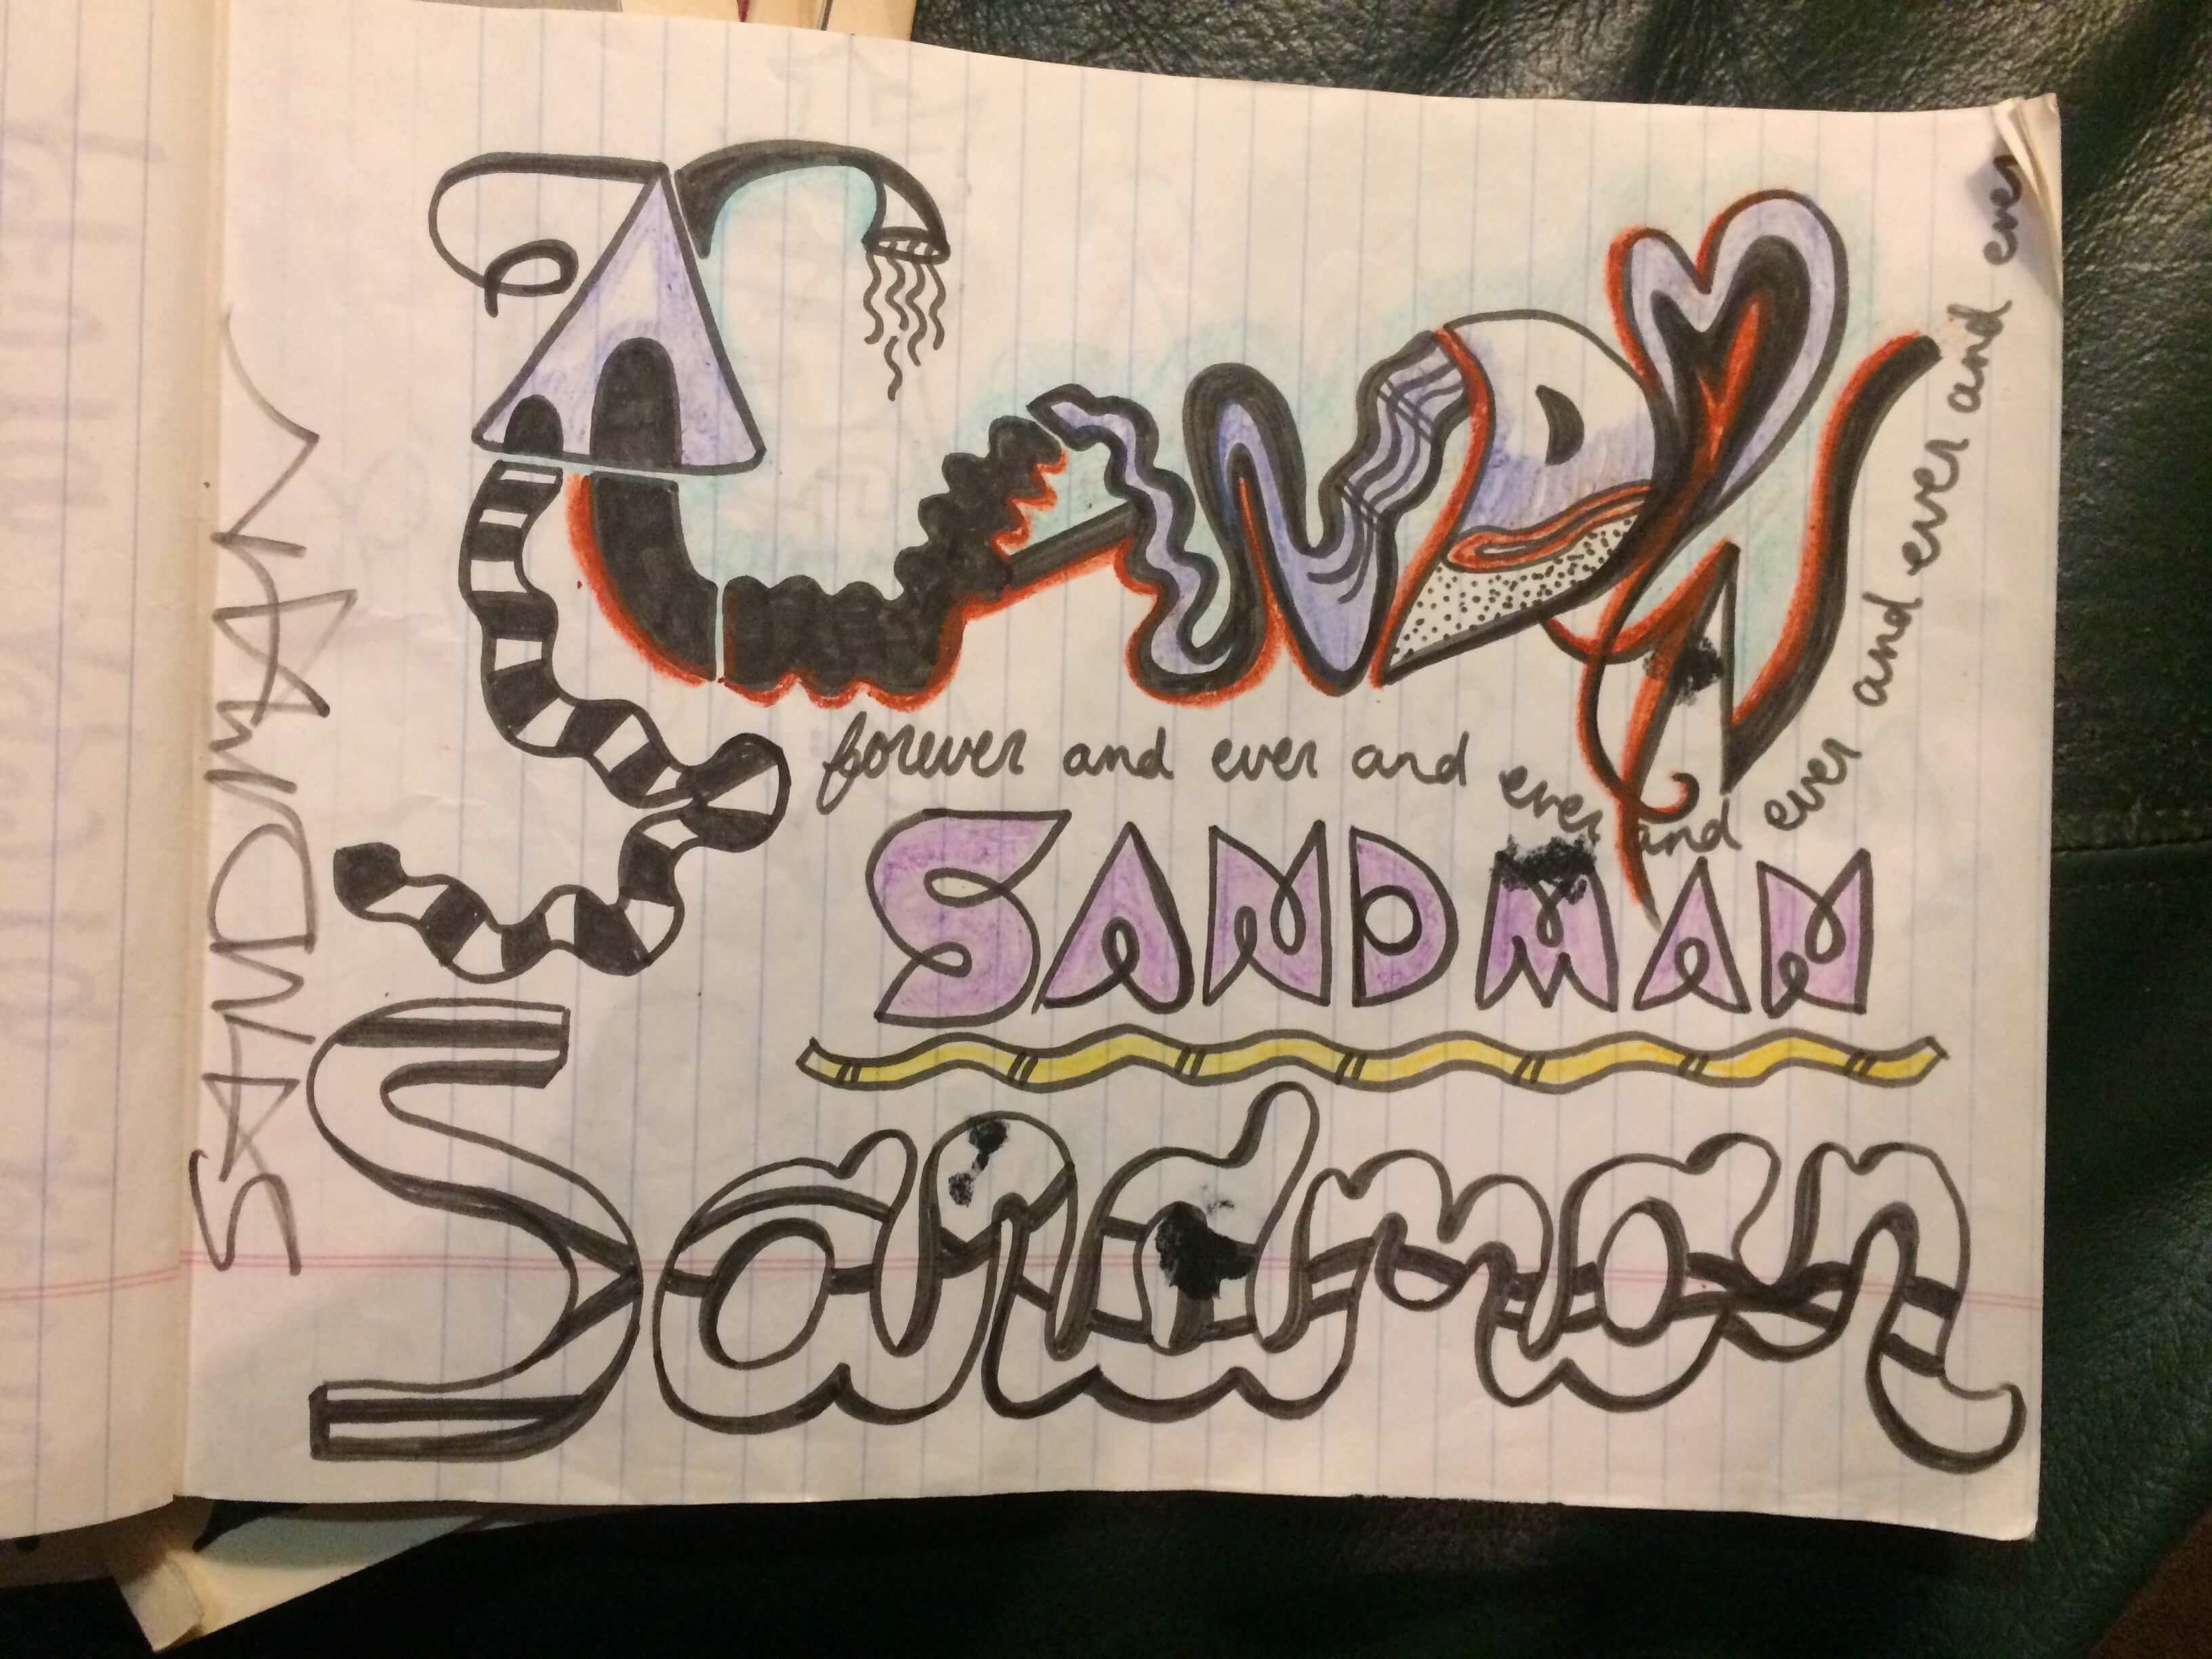 SANDMAN
forever and ever and ever and ever and ever and ever
SANDMAN
Sandman